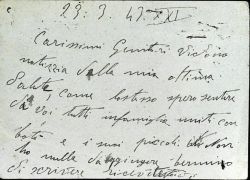 29. 3. 43. XXI
Carissimi Genitori
notizia della mia ottima
Salute, come lostesso spero sentire
da voi tutti infamiglia uniti con
e i suoi piccoli. Non
ho nulla daggiungere termino
di scrivere